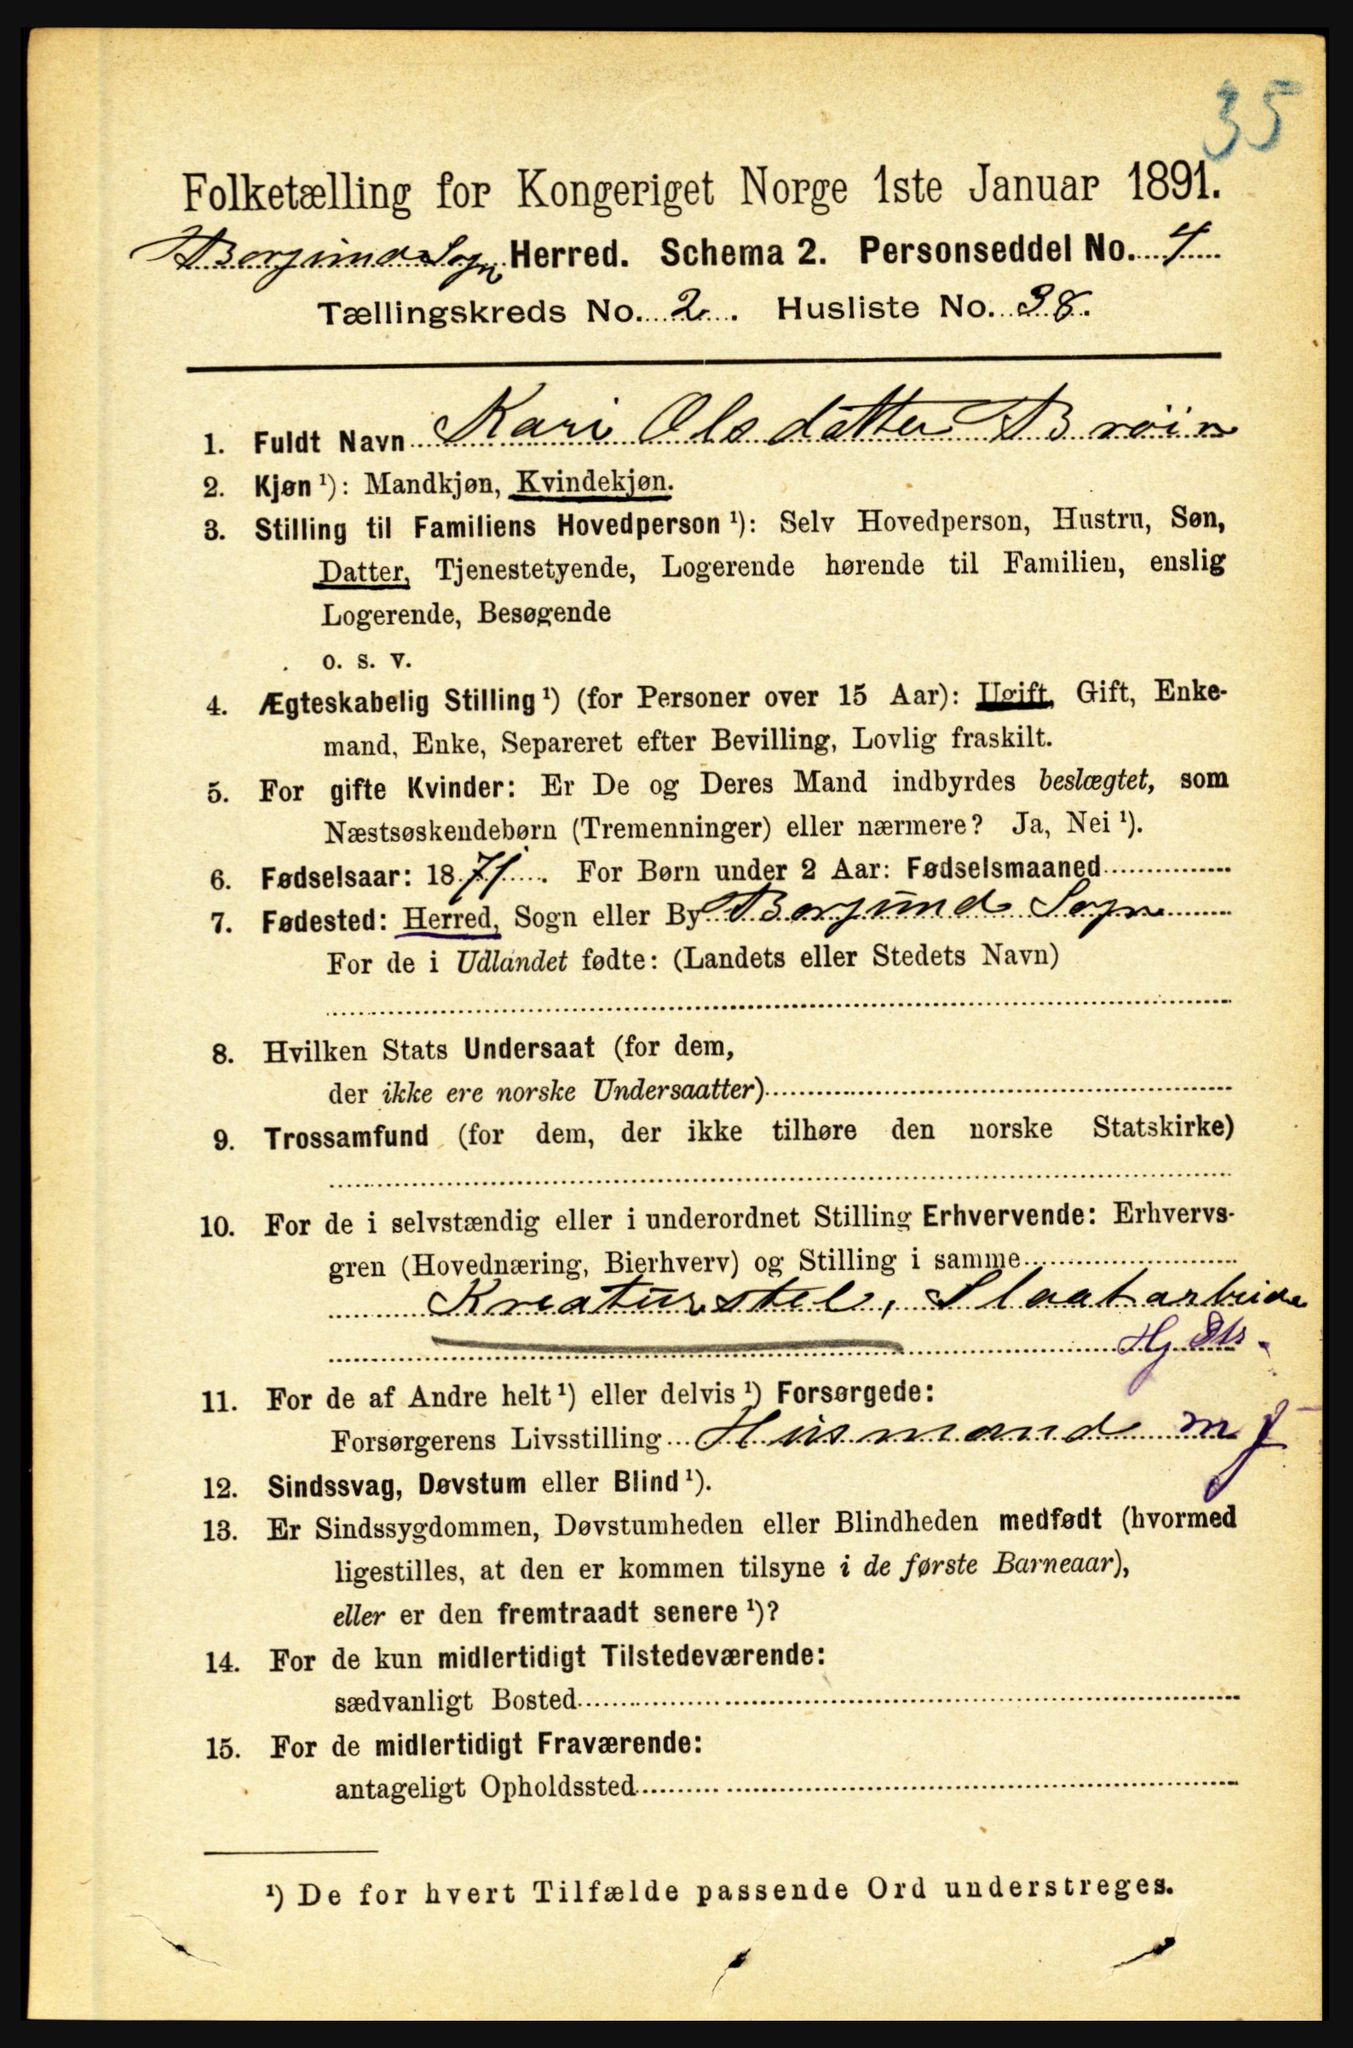 35
Folketælling for Kongeriget Norge 1ste Januar 1891.
Borgund Sogn Herred. Schema 2. Personseddel No. 4
Tællingskreds No. 2. Husliste No. 38.
1. Fuldt Navn Kari Olsdatter Brøin
2. Kjøn ¹): Mandkjøn, Kvindekjøn.
3. Stilling til Familiens Hovedperson ¹): Selv Hovedperson, Hustru, Søn,
Datter, Tjenestetyende, Logerende hørende til Familien, enslig
Logerende, Besøgende
o. s. v.
4. Ægteskabelig Stilling ¹) (for Personer over 15 Aar): Ugift, Gift, Enke-
mand, Enke, Separeret efter Bevilling, Lovlig fraskilt.
5. For gifte Kvinder: Er De og Deres Mand indbyrdes beslægtet, som
Næstsøskendebørn (Tremenninger) eller nærmere? Ja, Nei ¹).
6. Fødselsaar: 1871. For Børn under 2 Aar: Fødselsmaaned
7. Fødested: Herred, Sogn eller By Borgund Sogn
For de i Udlandet fødte: (Landets eller Stedets Navn)
8. Hvilken Stats Undersaat (for dem,
der ikke ere norske Undersaatter)
9. Trossamfund (for dem, der ikke tilhøre den norske Statskirke)
10. For de i selvstændig eller i underordnet Stilling Erhvervende: Erhvervs-
gren (Hovednæring, Bierhverv) og Stilling i samme
Kreaturstel, Slaatarbeide
Hj
11. For de af Andre helt ¹) eller delvis ¹) Forsørgede:
Forsørgerens Livsstilling Husmand m J
12. Sindssvag, Døvstum eller Blind ¹).
13. Er Sindssygdommen, Døvstumheden eller Blindheden medfødt (hvormed
ligestilles, at den er kommen tilsyne i de første Barneaar),
eller er den fremtraadt senere ¹)?
14. For de kun midlertidigt Tilstedeværende:
sædvanligt Bosted
15. For de midlertidigt Fraværende:
antageligt Opholdssted
¹) De for hvert Tilfælde passende Ord understreges.